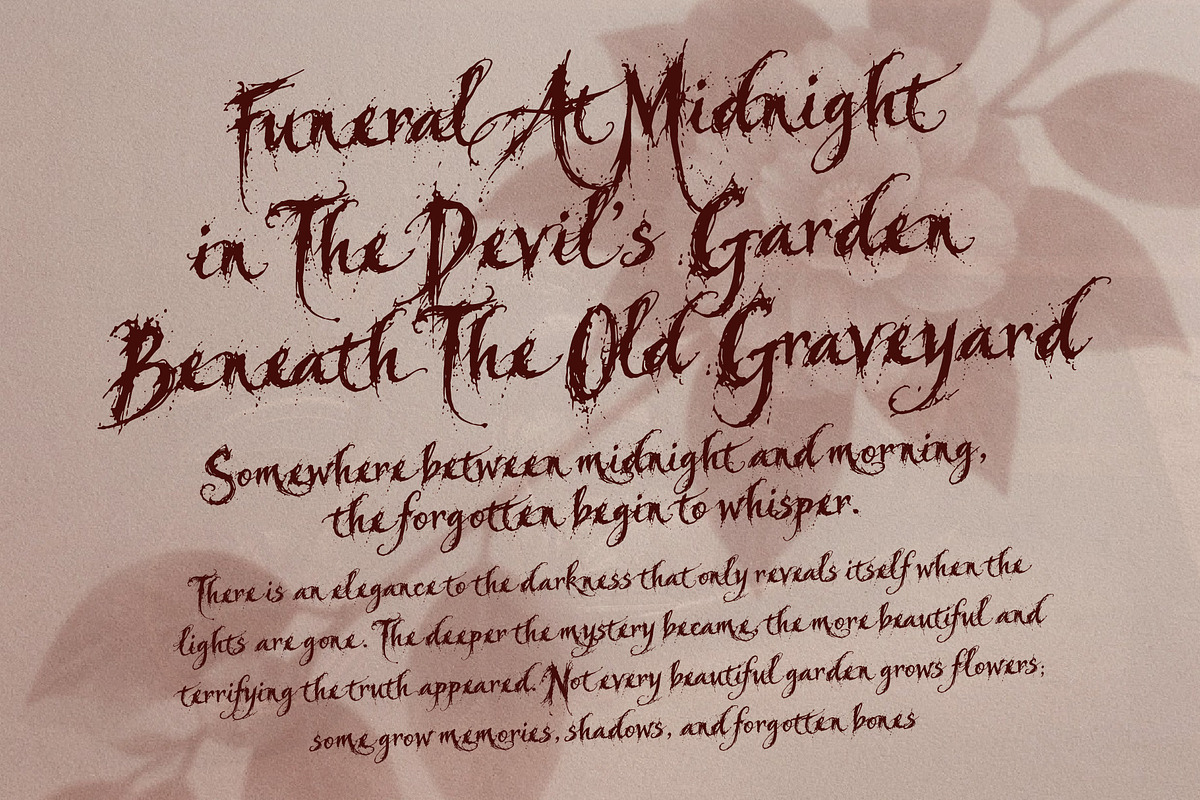 Funeral At Midnight
in The Devil's Garden
Beneath The Old Graveyard
Somewhere between midnight and morning,
the forgotten begin to whisper.
There is an elegance to the darkness that only reveals itself when the
lights are gone. The deeper the mystery became, the more beautiful and
terrifying the truth appeared. Not every beautiful garden grows flowers;
some grow memories, shadows, and forgotten bones